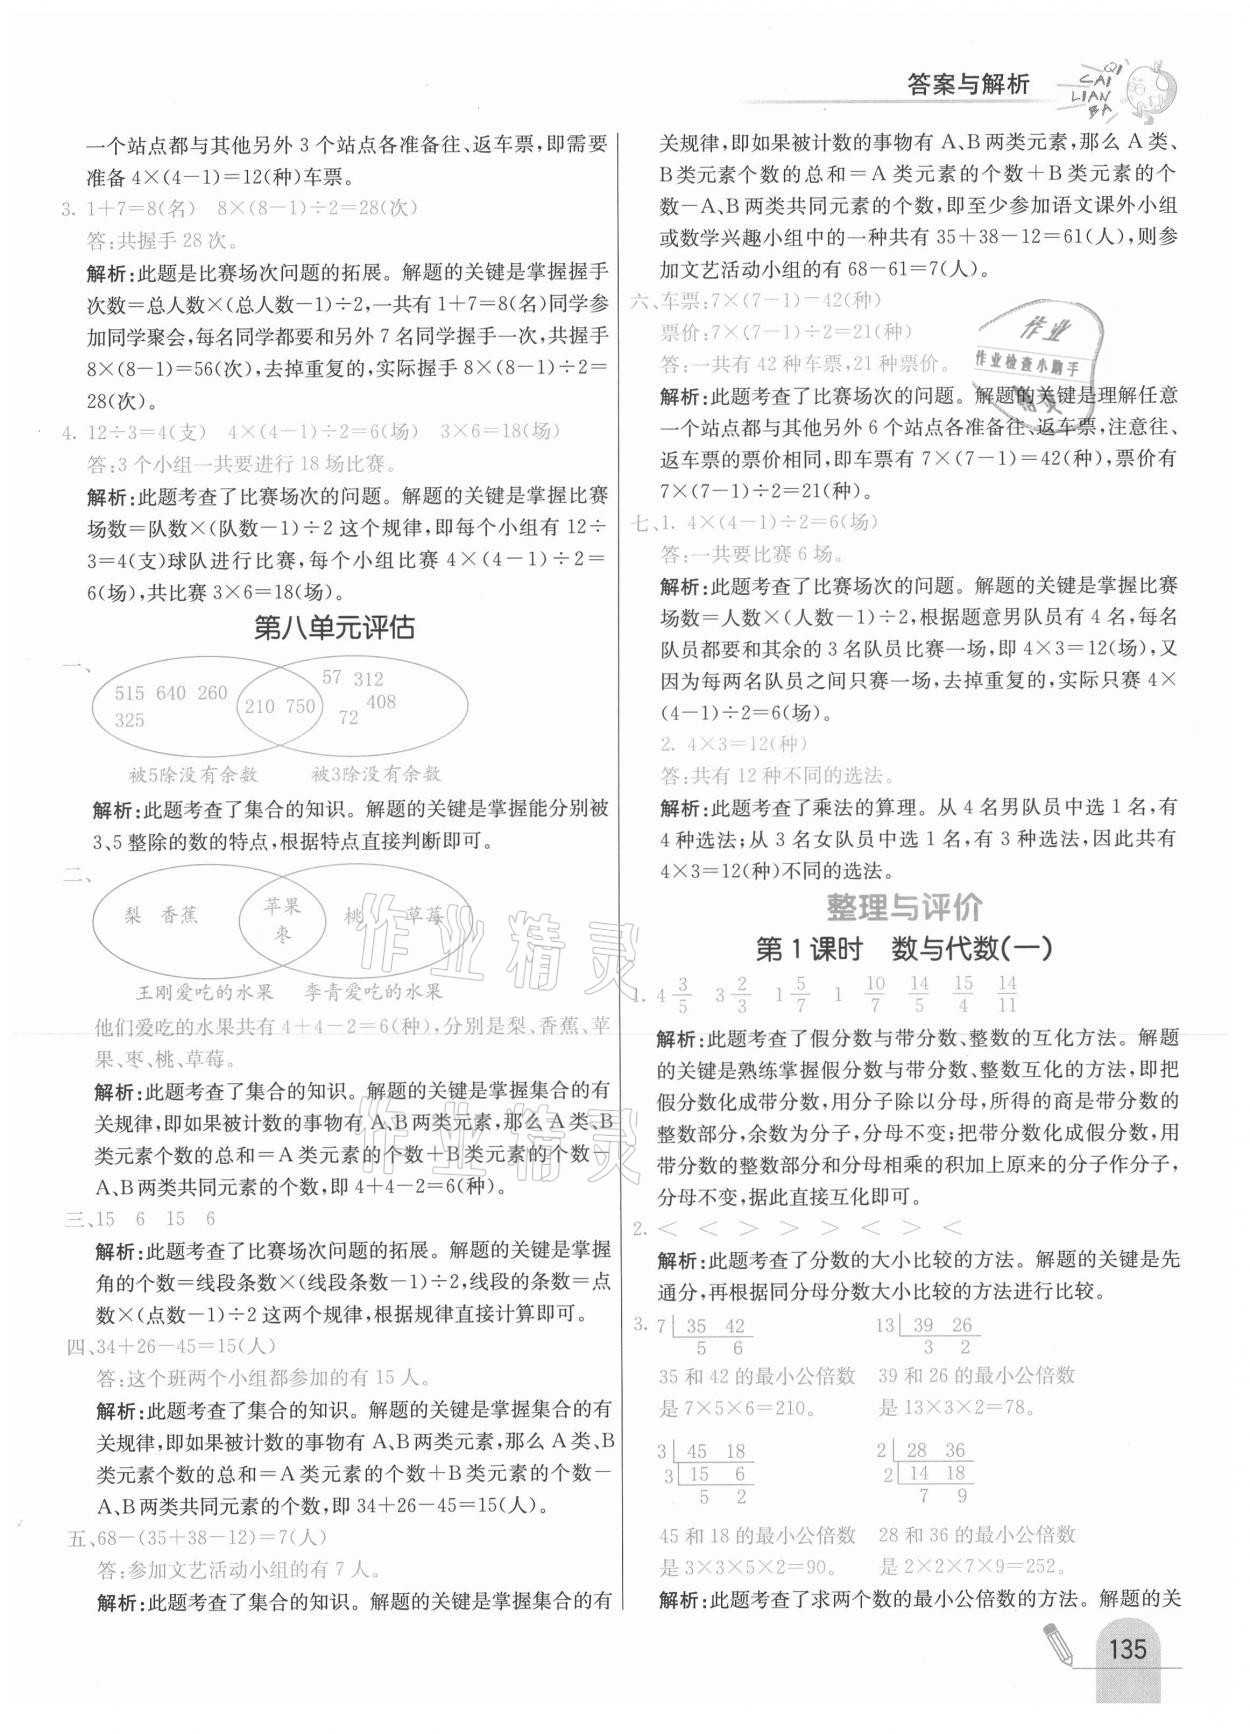 答案与解析
QI
CAI
LIAN
BA
一个站点都与其他另外 3 个站点各准备往、返车票,即需要
准备 4×(4-1)=12(种)车票。
3. 1+7=8(名) 8×(8-1)÷2=28(次)
答:共握手 28 次。
解析:此题是比赛场次问题的拓展。解题的关键是掌握握手
次数=总人数×(总人数-1)÷2,一共有 1+7=8(名)同学参
加同学聚会,每名同学都要和另外 7 名同学握手一次,共握手
8×(8-1)=56(次),去掉重复的,实际握手 8×(8-1)÷2=
28(次)。
4. 12÷3=4(支) 4×(4-1)÷2=6(场) 3×6=18(场)
答:3 个小组一共要进行 18 场比赛。
解析:此题考查了比赛场次的问题。解题的关键是掌握比赛
场数=队数×(队数-1)÷2 这个规律,即每个小组有 12÷
3=4(支)球队进行比赛,每个小组比赛 4×(4-1)÷2=
6(场),共比赛 3×6=18(场)。
第八单元评估
一、
515 640 260
325
210 750
57 312
408
72
被5除没有余数 被3除没有余数
解析:此题考查了集合的知识。解题的关键是掌握能分别被
3、5 整除的数的特点,根据特点直接判断即可。
二、
梨 香蕉
苹果
枣
桃 草莓
王刚爱吃的水果 李青爱吃的水果
他们爱吃的水果共有 4+4-2=6(种),分别是梨、香蕉、苹
果、枣、桃、草莓。
解析:此题考查了集合的知识。解题的关键是掌握集合的有
关规律,即如果被计数的事物有 A、B 两类元素,那么 A 类、B
类元素个数的总和=A 类元素的个数+B 类元素的个数-
A、B 两类共同元素的个数,即 4+4-2=6(种)。
三、15 6 15 6
解析:此题考查了比赛场次问题的拓展。解题的关键是掌握
角的个数=线段条数×(线段条数-1)÷2,线段的条数=点
数×(点数-1)÷2 这两个规律,根据规律直接计算即可。
四、34+26-45=15(人)
答:这个班两个小组都参加的有 15 人。
解析:此题考查了集合的知识。解题的关键是掌握集合的有
关规律,即如果被计数的事物有 A、B 两类元素,那么 A 类、B
类元素个数的总和=A 类元素的个数+B 类元素的个数-
A、B 两类共同元素的个数,即 34+26-45=15(人)。
五、68-(35+38-12)=7(人)
答:参加文艺活动小组的有 7 人。
解析:此题考查了集合的知识。解题的关键是掌握集合的有
关规律,即如果被计数的事物有 A、B 两类元素,那么 A 类、
B 类元素个数的总和=A 类元素的个数+B 类元素的个
数-A、B 两类共同元素的个数,即至少参加语文课外小组
或数学兴趣小组中的一种共有 35+38-12=61(人),则参
加文艺活动小组的有 68-61=7(人)。
六、车票:7×(7-1)=42(种)
票价:7×(7-1)÷2=21(种)
答:一共有 42 种车票,21 种票价。
解析:此题考查了比赛场次的问题。解题的关键是理解任意
一个站点都与其他另外 6 个站点各准备往、返车票,注意往、
返车票的票价相同,即车票有 7×(7-1)=42(种),票价有
7×(7-1)÷2=21(种)。
七、1. 4×(4-1)÷2=6(场)
答:一共要比赛 6 场。
解析:此题考查了比赛场次的问题。解题的关键是掌握比赛
场数=人数×(人数-1)÷2,根据题意男队员有 4 名,每名
队员都要和其余的 3 名队员比赛一场,即 4×3=12(场),又
因为每两名队员之间只赛一场,去掉重复的,实际只赛 4×
(4-1)÷2=6(场)。
2. 4×3=12(种)
答:共有 12 种不同的选法。
解析:此题考查了乘法的算理。从 4 名男队员中选 1 名,有
4 种选法;从 3 名女队员中选 1 名,有 3 种选法,因此共有
4×3=12(种)不同的选法。
整理与评价
第 1 课时 数与代数(一)
1. 4 3/5 3 2/3 1 5/7 1 10/7 14/5 15/4 14/11
解析:此题考查了假分数与带分数、整数的互化方法。解题
的关键是熟练掌握假分数与带分数、整数互化的方法,即把
假分数化成带分数,用分子除以分母,所得的商是带分数的
整数部分,余数为分子,分母不变;把带分数化成假分数,用
带分数的整数部分和分母相乘的积加上原来的分子作分子,
分母不变,据此直接互化即可。
2. < < > > > < > <
解析:此题考查了分数的大小比较的方法。解题的关键是先
通分,再根据同分母分数大小比较的方法进行比较。
3. 7 35 42 13 39 26
5 6 3 2
35 和 42 的最小公倍数 39 和 26 的最小公倍数
是 7×5×6=210。 是 13×3×2=78。
3 45 18 2 28 36
3 15 6 2 14 18
5 2 7 9
45 和 18 的最小公倍数 28 和 36 的最小公倍数
是 3×3×5×2=90。 是 2×2×7×9=252。
解析:此题考查了求两个数的最小公倍数的方法。解题的关
作业
作业检查小助手
精灵
作业精灵
作业精灵
135